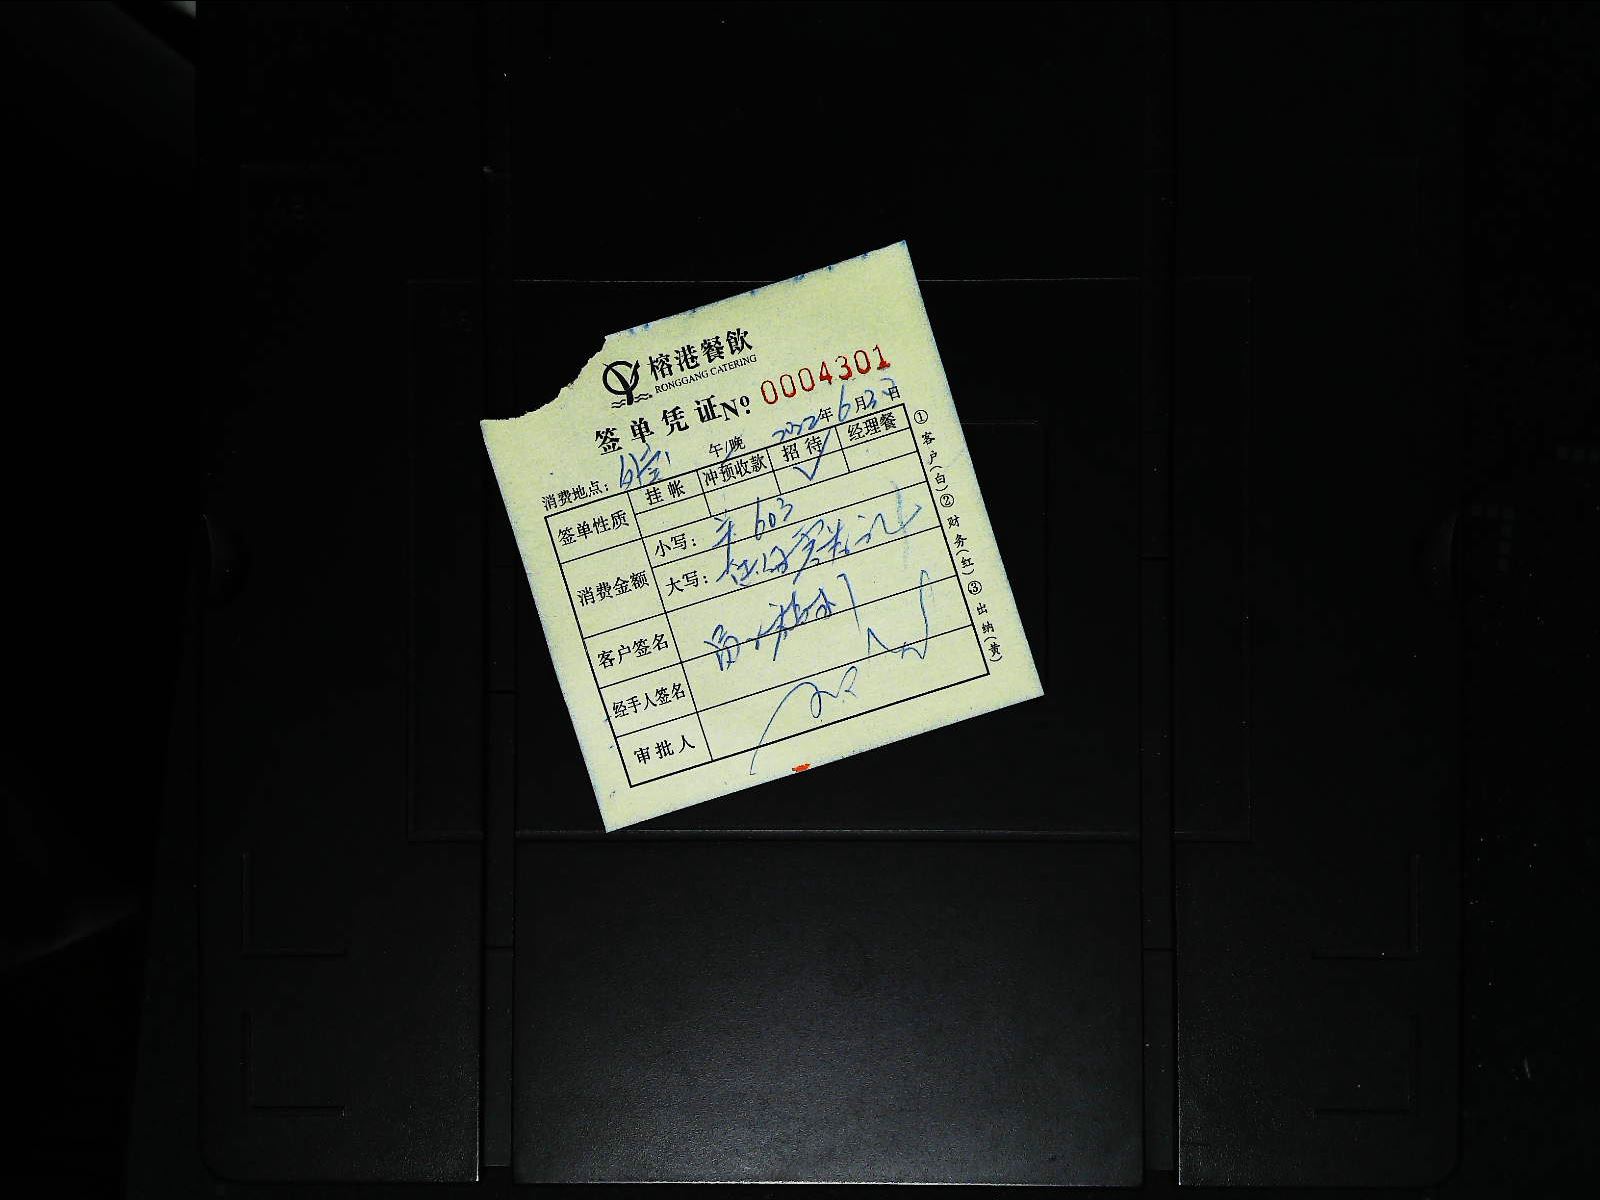 榕港餐飲
RONGGANG CATERING
签单凭证 № 0004301
午/晚 2022年6月 日
消费地点:
签单性质 挂帐 冲预收款 招待 经理餐
✓
消费金额 小写: 603
大写:
客户签名
经手人签名
审批人
①客户(白) ②财务(红) ③出纳(黄)